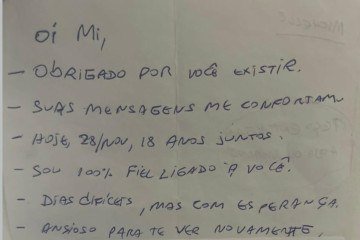 Oi Mi,
- OBRIGADO POR VOCÊ EXISTIR.
- SUAS MENSAGENS ME CONFORTAM
- HOJE, 28/NOV, 18 ANOS JUNTOS.
- SOU 100% FIEL LIGADO A VOCÊ.
- DIAS DIFÍCEIS, MAS COM ESPERANÇA.
- ANSIOSO PARA TE VER NOVAMENTE,